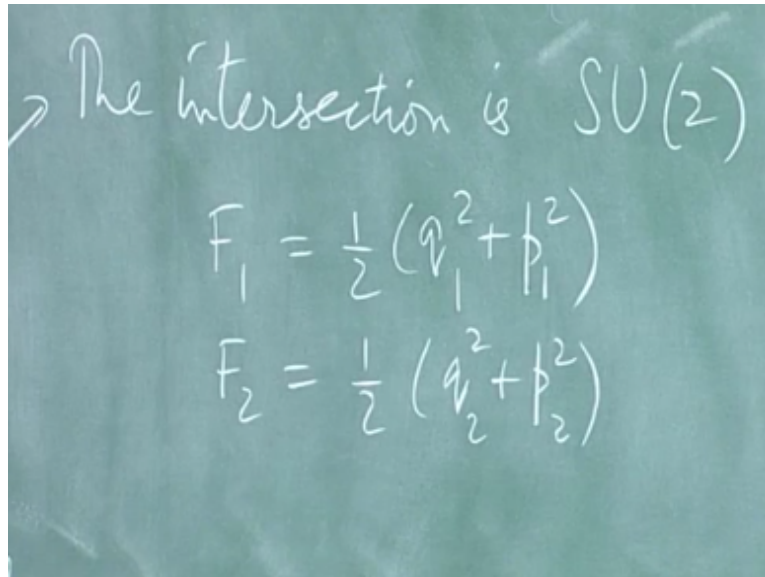 The intersection is SU(2)
F₁ = ½ (q₁² + p₁²)
F₂ = ½ (q₂² + p₂²)